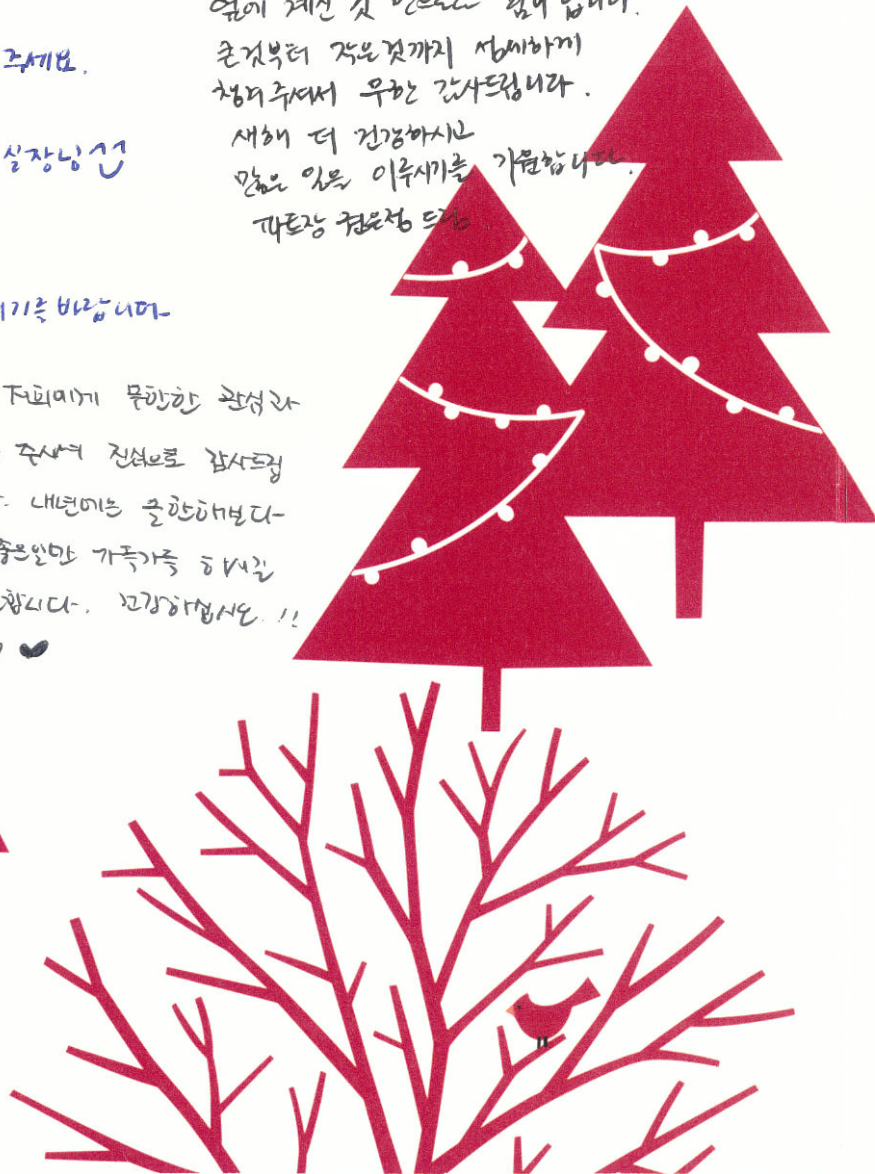 옆에 계신 것 만으로도 힘이 됩니다.
큰것부터 작은것까지 섬세하게
챙겨주셔서 무한 감사드립니다.
새해 더 건강하시고
많은 일을 이루시기를 기원합니다.
파트장 권은정 드림
주세요.
실장님^^
기를 바랍니다
저희에게 무한한 관심과
주셔서 진심으로 감사드립
내년에는 올한해보다
좋은일만 가득가득 하시길
합니다. 건강하십시오!!